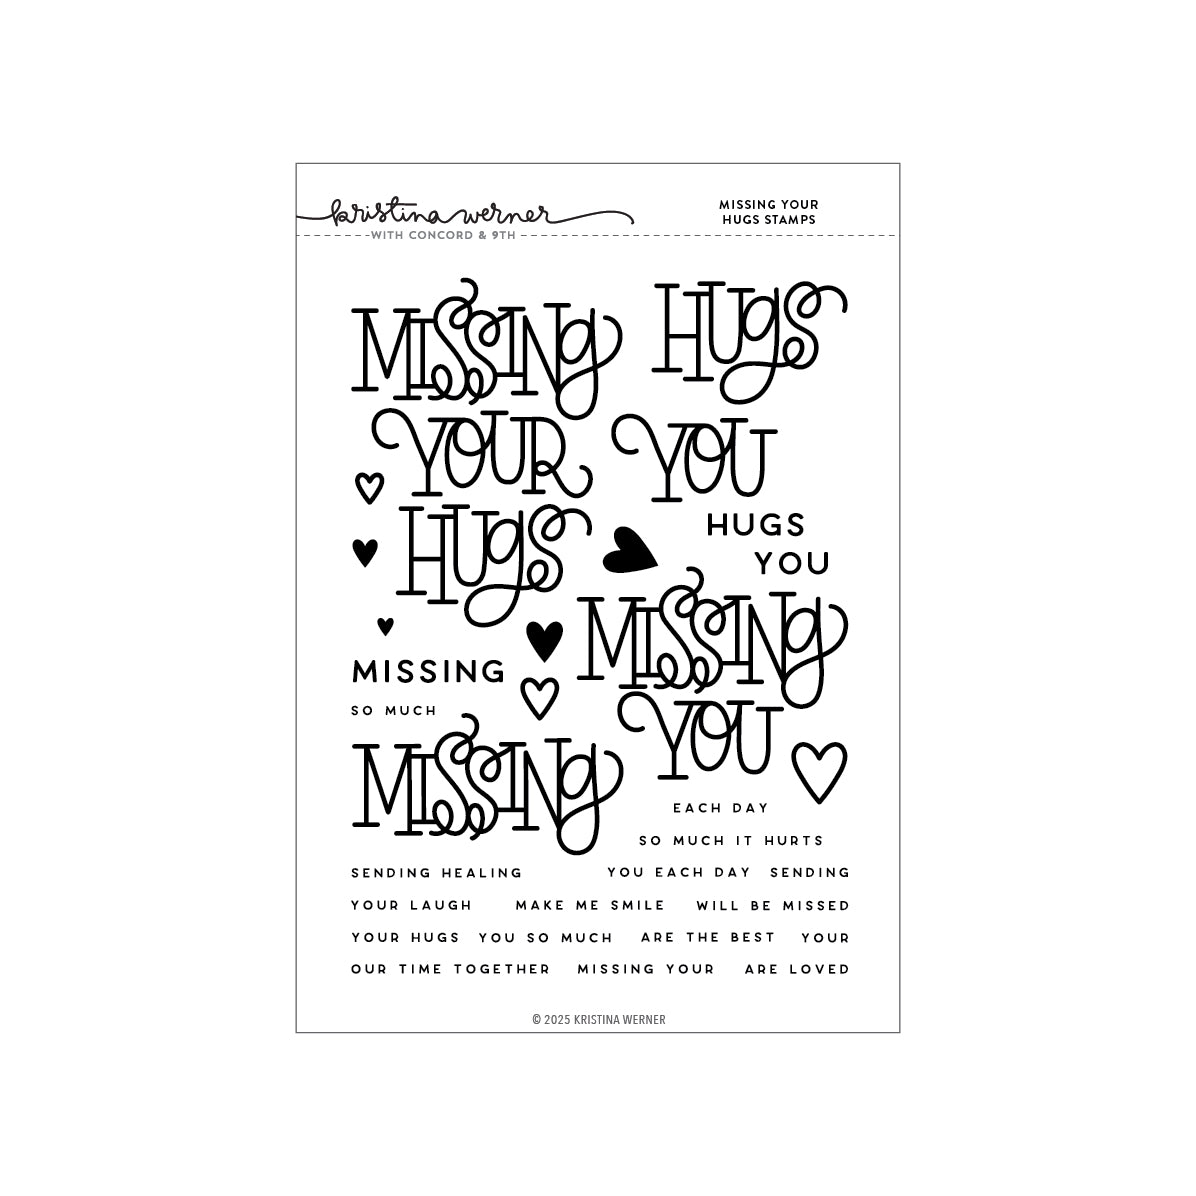 kristina werner
WITH CONCORD & 9TH
MISSING YOUR
HUGS STAMPS
MISSING
YOUR
HUgS
HUgS
YOU
HUGS
YOU
MISSING
SO MUCH
MISSING
YOU
MISSING
EACH DAY
SO MUCH IT HURTS
SENDING HEALING YOU EACH DAY SENDING
YOUR LAUGH MAKE ME SMILE WILL BE MISSED
YOUR HUGS YOU SO MUCH ARE THE BEST YOUR
OUR TIME TOGETHER MISSING YOUR ARE LOVED
© 2025 KRISTINA WERNER